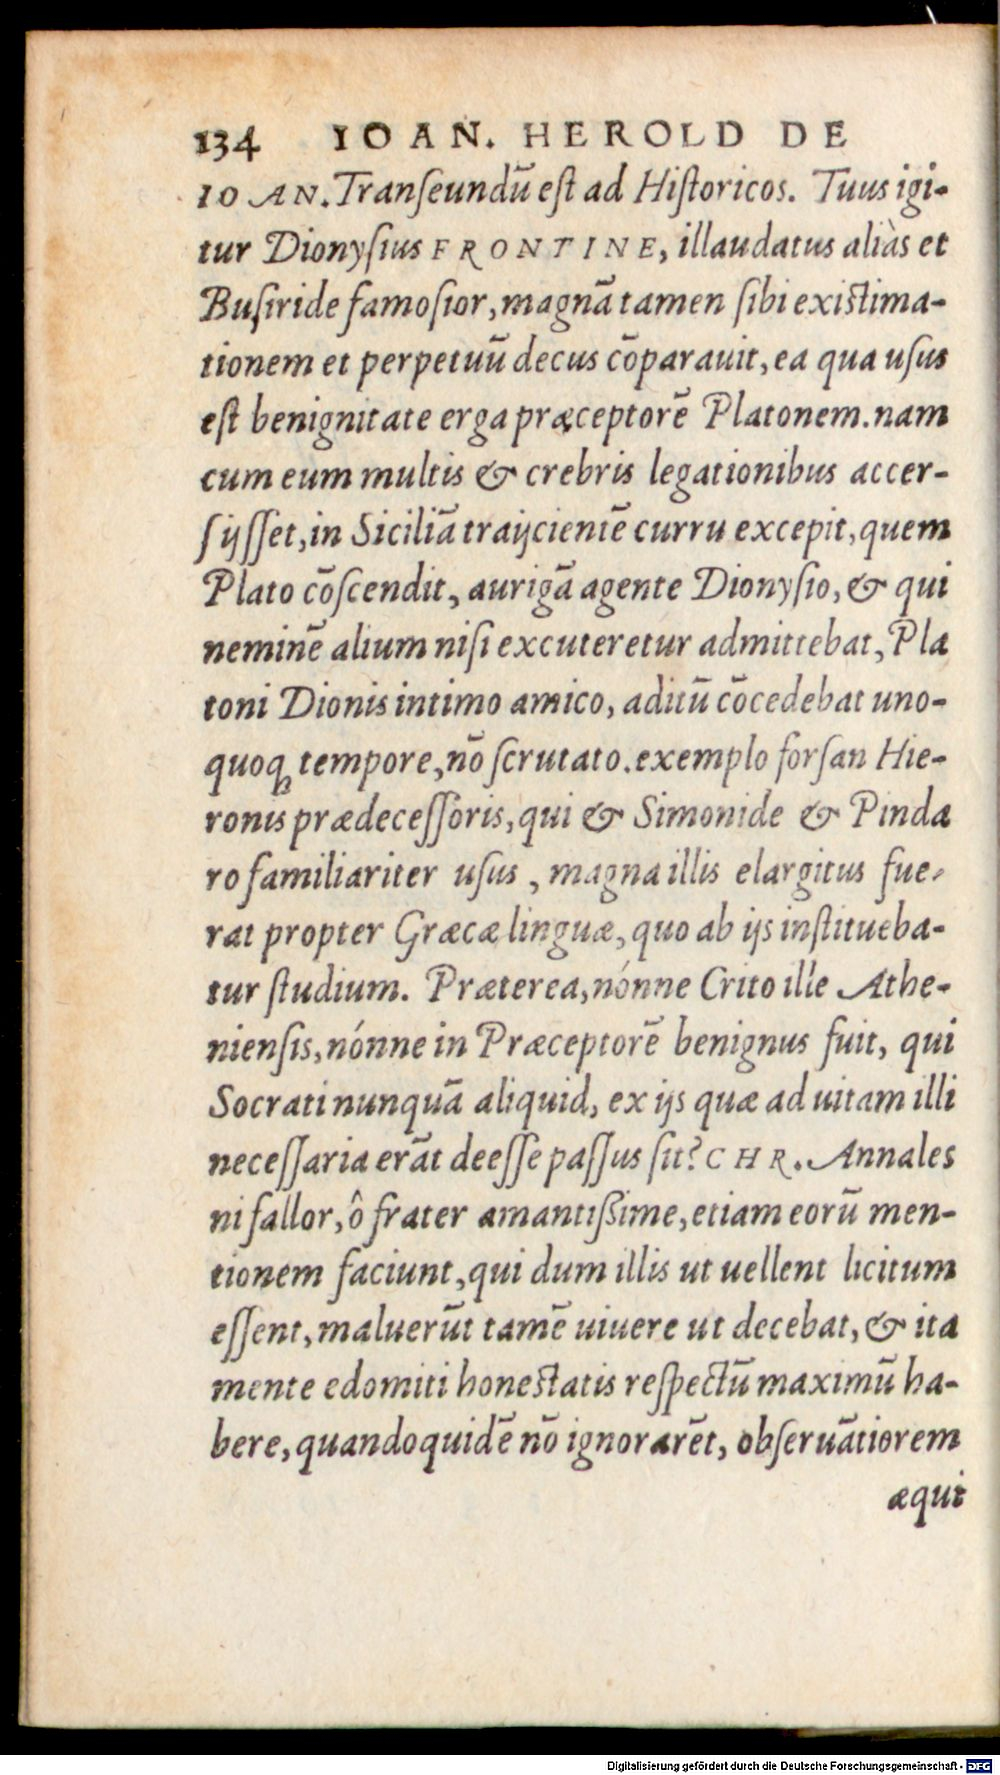 134 IOAN. HEROLD DE
IOAN. Tranſeundū eſt ad Hiſtoricos. Tuus igi-
tur Dionyſius FRONTINE, illaudatus aliàs et
Buſiride famoſior, magnā tamen ſibi exiſtima-
tionem et perpetuū decus cōparauit, ea qua uſus
eſt benignitate erga præceptorē Platonem. nam
cum eum multis & crebris legationibus accer-
ſijſſet, in Siciliā traijcientē curru excepit, quem
Plato cōſcendit, aurigā agente Dionyſio, & qui
neminē alium niſi excuteretur admittebat, Pla
toni Dionis intimo amico, aditū cōcedebat uno-
quoq; tempore, nō ſcrutato. exemplo forſan Hie-
ronis prædeceſſoris, qui & Simonide & Pinda
ro familiariter uſus, magna illis elargitus fue-
rat propter Græcæ linguæ, quo ab ijs inſtitueba-
tur ſtudium. Præterea, nónne Crito ille Athe-
nienſis, nónne in Præceptorē benignus fuit, qui
Socrati nunquā aliquid, ex ijs quæ ad uitam illi
neceſſaria erāt deeſſe paſſus ſit? CHR. Annales
ni fallor, ô frater amantißime, etiam eorū men-
tionem faciunt, qui dum illis ut uellent licitum
eſſent, maluerūt tamē uiuere ut decebat, & ita
mente edomiti honeſtatis reſpectū maximū ha-
bere, quandoquidē nō ignorarēt, obſeruātiorem
æqui
Digitalisierung gefördert durch die Deutsche Forschungsgemeinschaft - DFG